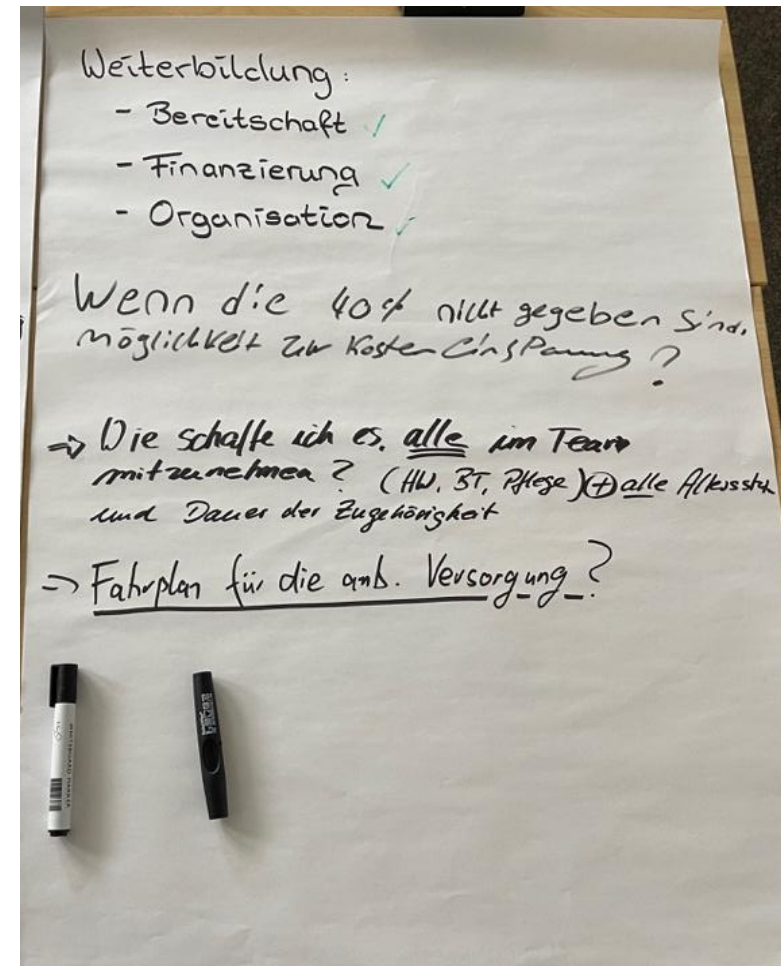 Weiterbildung:
- Bereitschaft ✓
- Finanzierung ✓
- Organisation ✓
Wenn die 40% nicht gegeben sind,
möglichkeit zur Kosten Einsparung ?
⇒ Wie schaffe ich es, alle im Team
mitzunehmen ? (HW, BT, Pflege) ⊕ alle
und Dauer der Zugehörigkeit
⇒ Fahrplan für die amb. Versorgung ?